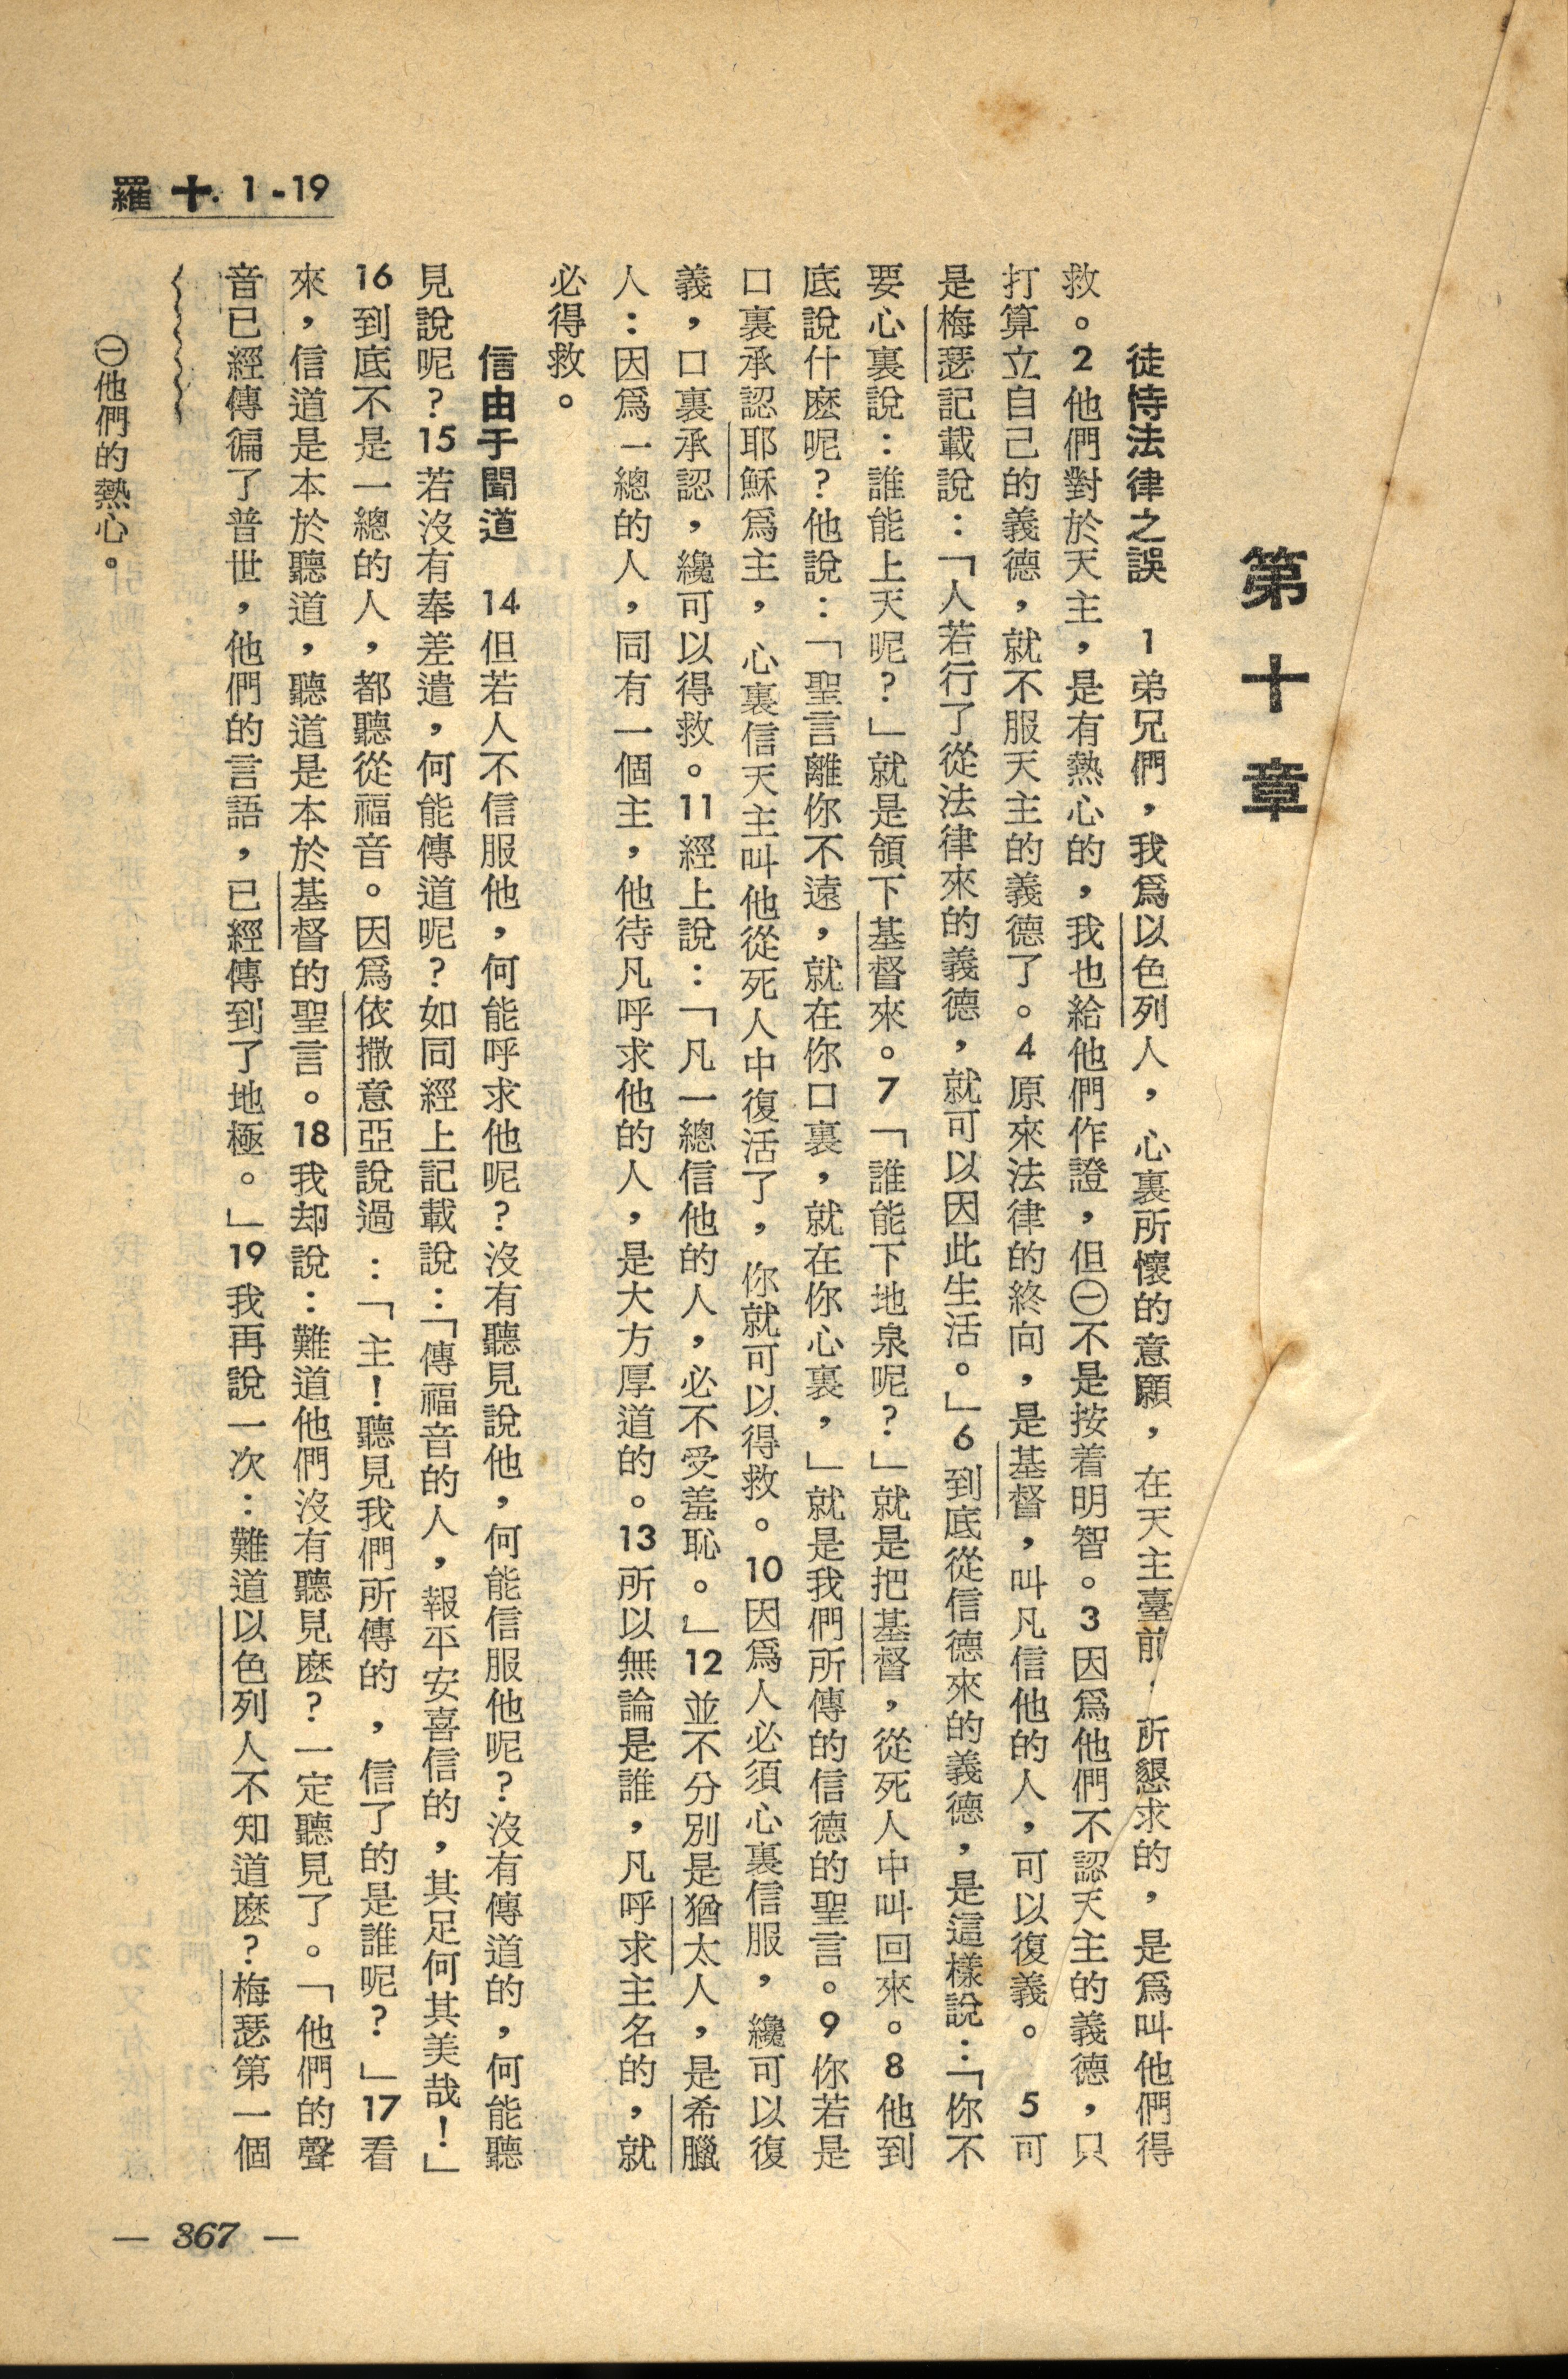 羅十. 1-19
第十章
徒恃法律之誤　1弟兄們，我爲以色列人，心裏所懷的意願，在天主臺前，所懇求的，是爲叫他們得
救。2他們對於天主，是有熱心的，我也給他們作證，但㊀不是按着明智。3因爲他們不認天主的義德，只
打算立自己的義德，就不服天主的義德了。4原來法律的終向，是基督，叫凡信他的人，可以復義。5可
是梅瑟記載說：「人若行了從法律來的義德，就可以因此生活。」6到底從信德來的義德，是這樣說：「你不
要心裏說：誰能上天呢？」就是領下基督來。7「誰能下地泉呢？」就是把基督，從死人中叫回來。8他到
底說什麽呢？他說：「聖言離你不遠，就在你口裏，就在你心裏，」就是我們所傳的信德的聖言。9你若是
口裏承認耶穌爲主，心裏信天主叫他從死人中復活了，你就可以得救。10因爲人必須心裏信服，纔可以復
義，口裏承認，纔可以得救。11經上說：「凡一總信他的人，必不受羞恥。」12並不分別是猶太人，是希臘
人：因爲一總的人，同有一個主，他待凡呼求他的人，是大方厚道的。13所以無論是誰，凡呼求主名的，就
必得救。
信由于聞道　14但若人不信服他，何能呼求他呢？沒有聽見說他，何能信服他呢？沒有傳道的，何能聽
見說呢？15若沒有奉差遣，何能傳道呢？如同經上記載說：「傳福音的人，報平安喜信的，其足何其美哉！」
16到底不是一總的人，都聽從福音。因爲依撒意亞說過：「主！聽見我們所傳的，信了的是誰呢？」17看
來，信道是本於聽道，聽道是本於基督的聖言。18我却說：難道他們沒有聽見麽？一定聽見了。「他們的聲
音已經傳徧了普世，他們的言語，已經傳到了地極。」19我再說一次：難道以色列人不知道麽？梅瑟第一個
㊀他們的熱心。
— 367 —